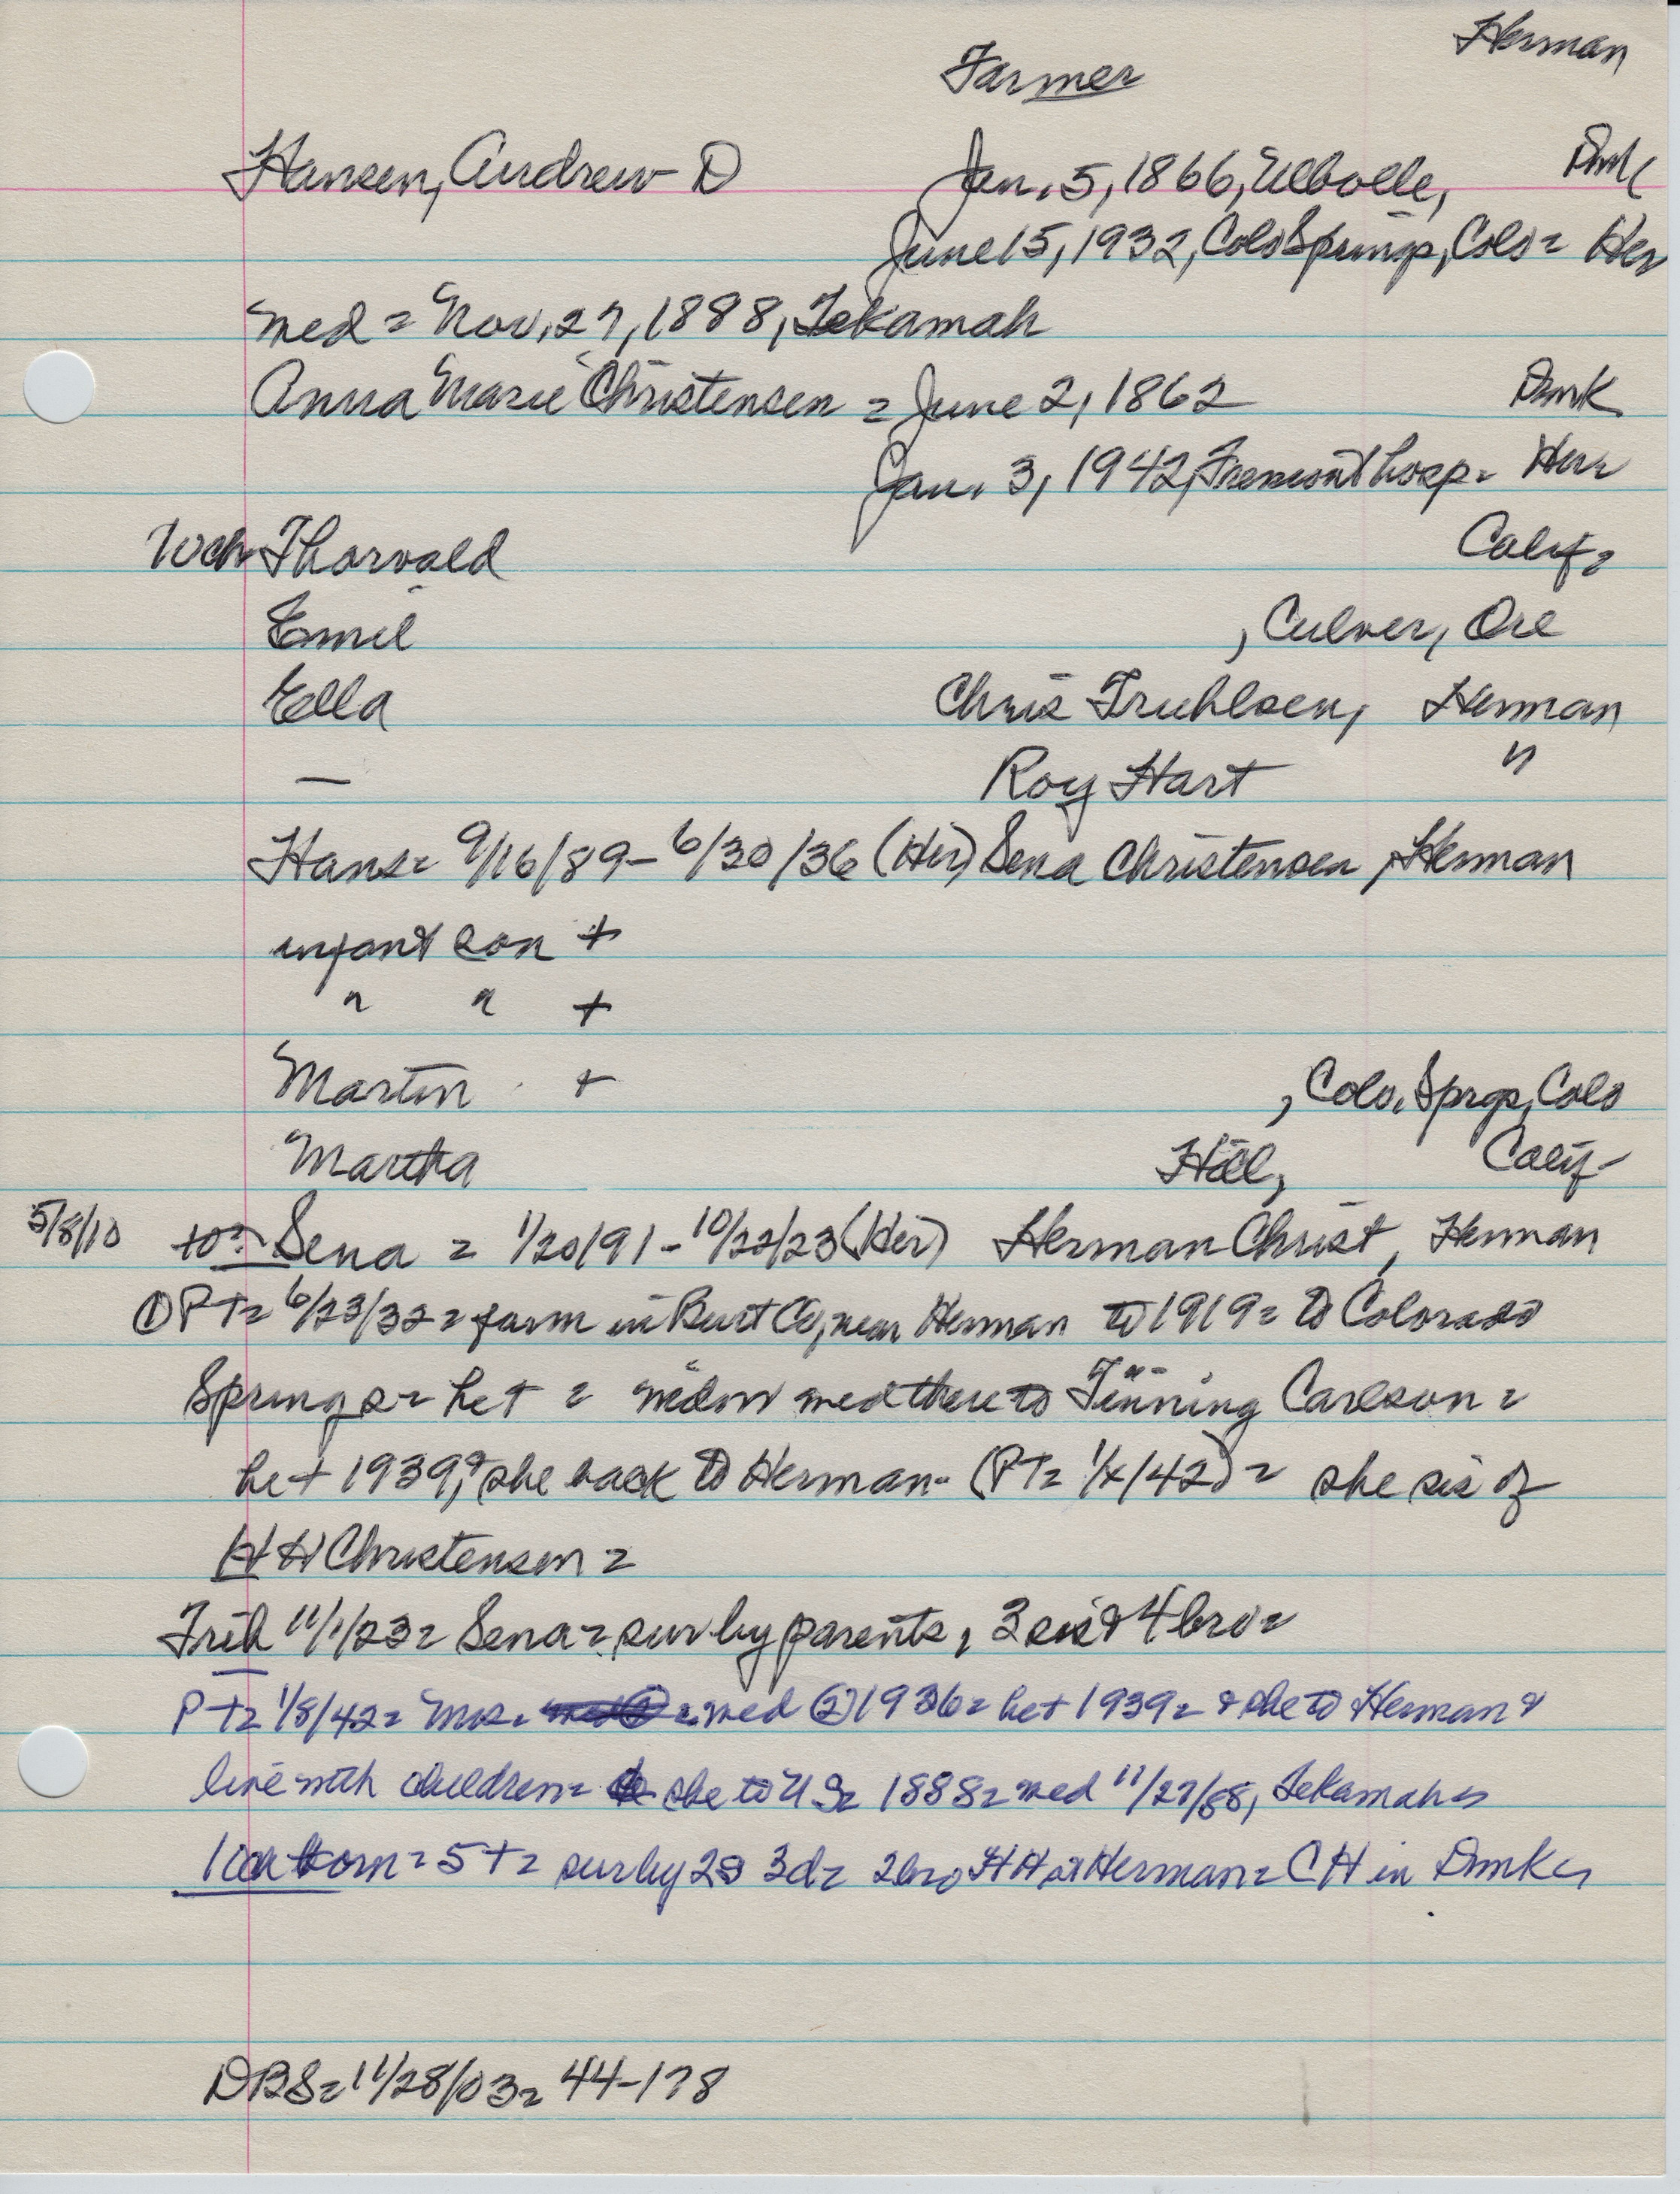 Herman
Farmer
Hansen, Andrew D Jan. 5, 1866, Ulbolle, Dmk
June 15, 1932, Colo Springs, Colo = Her
med = Nov. 27, 1888, Tekamah
Anna Marie Christensen = June 2, 1862 Dmk
Jan. 3, 1942, Fremont hosp = Her =
10ch Thorvald Calif =
Emil , Culver, Ore
Ella Chris Truhlsen, Herman
— Roy Hart "
Hans = 9/16/89 - 6/30/36 (Her) Sena Christensen, Herman
infant son +
" " +
Martin + , Colo. Sprgs, Colo
Martha Hill, Calif -
5/8/10 to = Sena = 1/20/91 - 10/22/23 (Her) Herman Christ, Herman
① PT = 6/23/32 = farm in Burt Co, near Herman to 1919 = to Colorado
Springs = he + = widow med there to Tinning Carlson =
he + 1939, & she back to Herman - (PT = 1/ /42) = she sis of
HH Christensen =
Trib 11/1/23 = Sena = sur by parents, 3 sis & 4 bro =
PT = 1/8/42 = Mrs. = med ② 1936 = he + 1939 = & she to Herman &
live with children = she to US = 1888 = med 11/27/88, Tekamah =
10ch born = 5 + = sur by 2s 3d = 2 bro HH at Herman = CH in Dmk =
DBS = 11/28/03 = 44-178